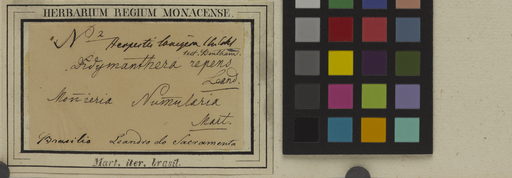 HERBARIUM REGIUM MONACENSE.
N 2 Herpestis
test. Bentham.
Didymanthera repens
Leand.
Monieria Numularia
Mart.
Brasilia Leandro do Sacramento
Mart. iter. brasil.